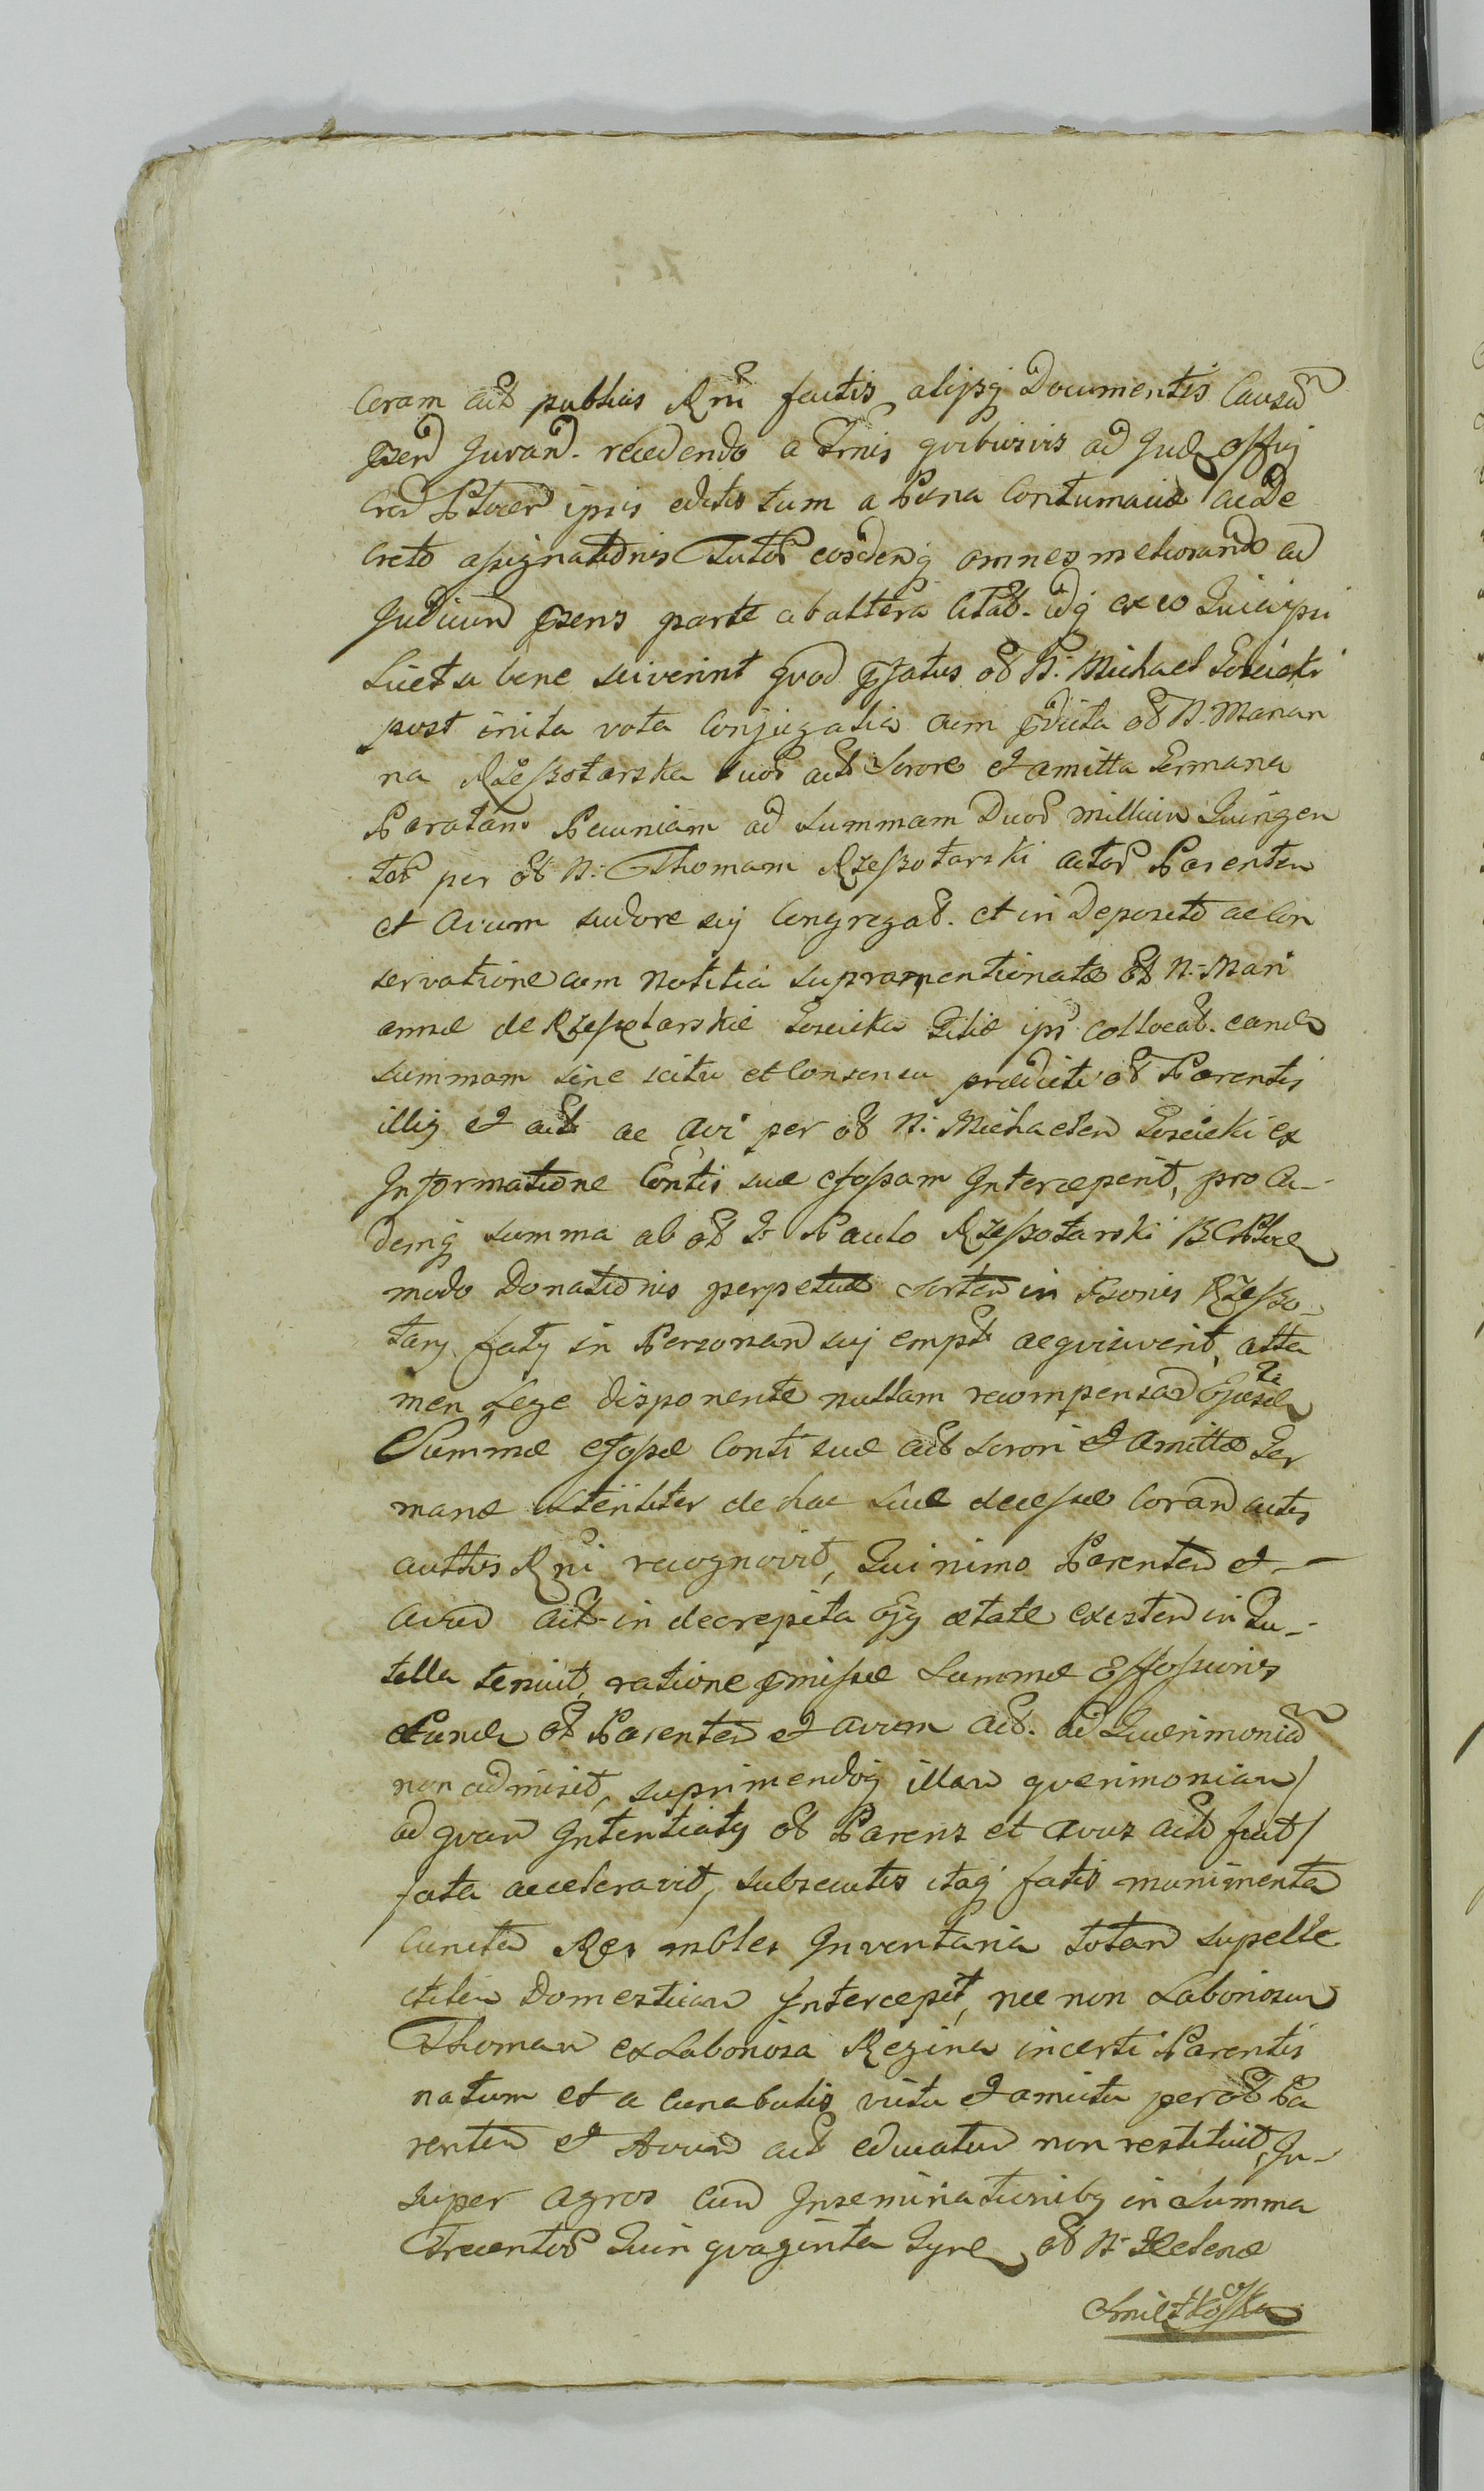 Coram act publicis Rni factis alijsq Documentis Causã
pzen Juvan. recedendo a Trnis quibusvis ad Jud offij
ipsis editis tum a Pæna Contumaciæ ac De
creto assignationis Tutor eosdemq omnes meliorando ad
Judicium pzens parte ab altera Citat. idq ex eo Quia ipsi
Licet a bene sciverint quod pfatus ol N. Michael Goscicki
post inita vota Conjugalia cum pdicta ol N. Marian
na Rzeszotarska suor act Sorore et amitta Germana
Paratam Pecuniam ad Summam Duor millium Quingen
tor per ol N. Thomam Rzeszotarski actor Parentem
et Avum sudore suj Congregat. et in Deposito ac Con
servatione cum notitia supramentionatæ ol N. Mari
annæ de Rzeszotarskie Goscicka Filiæ ips collocat. eand
summam sine scitu et Consensu prædicti ol Parentis
illig et act ac avi per ol N. Michaelem Goscicki ex
Informatione Contis suæ effossam Intercæperit, pro ea-
demq summa ab ol G Paulo Rzeszotarski
modo Donationis perpetuæ Sortem in Bonis Rzeszo-
tary faty in Personam suj empt acquisiverit, atta
men Lege disponente nullam recompensam Ejusd
Summæ effossæ Conti suæ act Sorori et Amittæ Ger
manæ de hac Luce decessæ Coram actis
autthis Rni recognovit, Quinimo Parentem et -
avum act in decrepita Ejq ætate existen in Tu-
tella tenuit, ratione pmissæ Summæ Effossionis
Eund ol Parentem et avum act. ad Quærimoniã
non admisit, suprimendoq illam querimoniam /
ad quam Intentiaty ol Parens et avus act fuit /
fata acceleravit, subsecutis itaq fatis munimenta
Cuncta Res mbles Inventaria totam supelle
ctilem Domesticam Intercepit, nec non Laboriosum
Thomam ex Laboriosa Regina incerti Parentis
natum et a cunabulis victu et amictu per ol Pa
rentem et Avum act educatum non restituit, In-
super Agros cum Inseminationibq in Summa
Trecentor Quinquaginta Tynf ol N. Helenæ
Smiłkoska